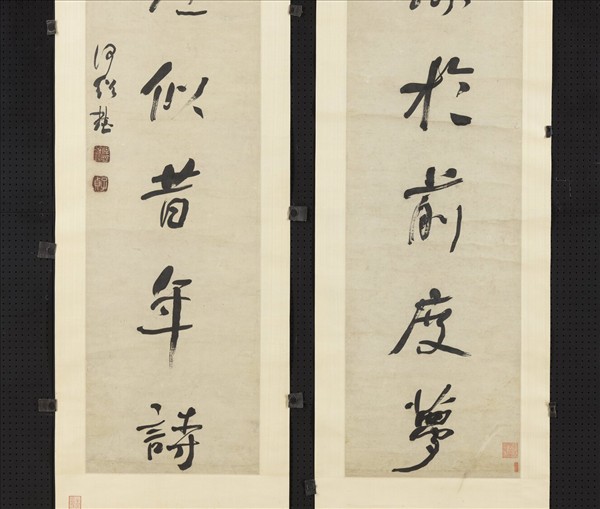 於前度夢
似昔年詩
何紹基